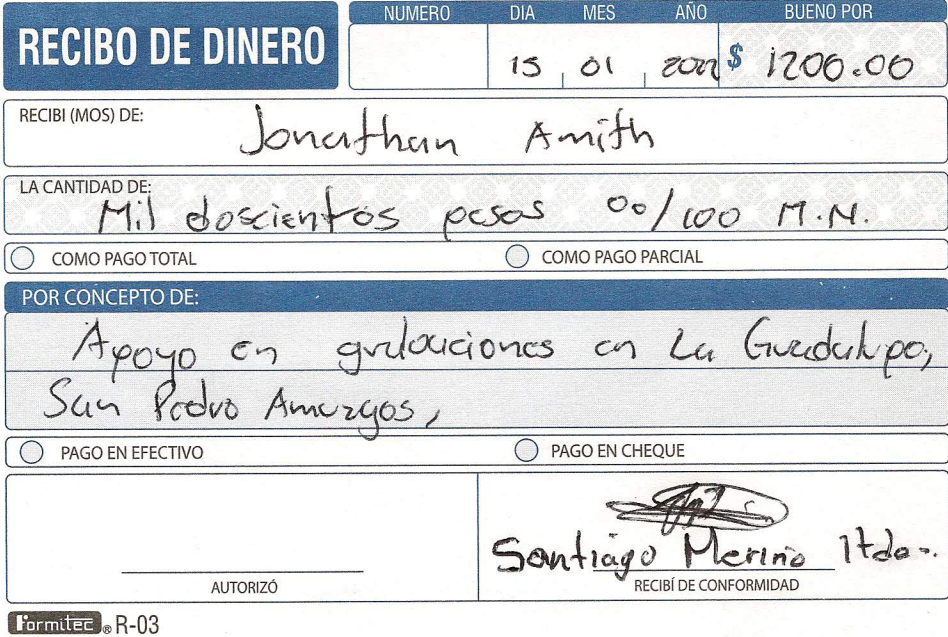 RECIBO DE DINERO
NUMERO DIA MES AÑO BUENO POR
15 01 2022 $ 1200.00
RECIBI (MOS) DE: Jonathan Amith
LA CANTIDAD DE:
Mil doscientos pesos 00/100 M.N.
COMO PAGO TOTAL COMO PAGO PARCIAL
POR CONCEPTO DE:
Apoyo en grabaciones en La Guadalupe,
San Pedro Amuzgos,
PAGO EN EFECTIVO PAGO EN CHEQUE
Santiago Merino
AUTORIZÓ RECIBÍ DE CONFORMIDAD
Formitec® R-03